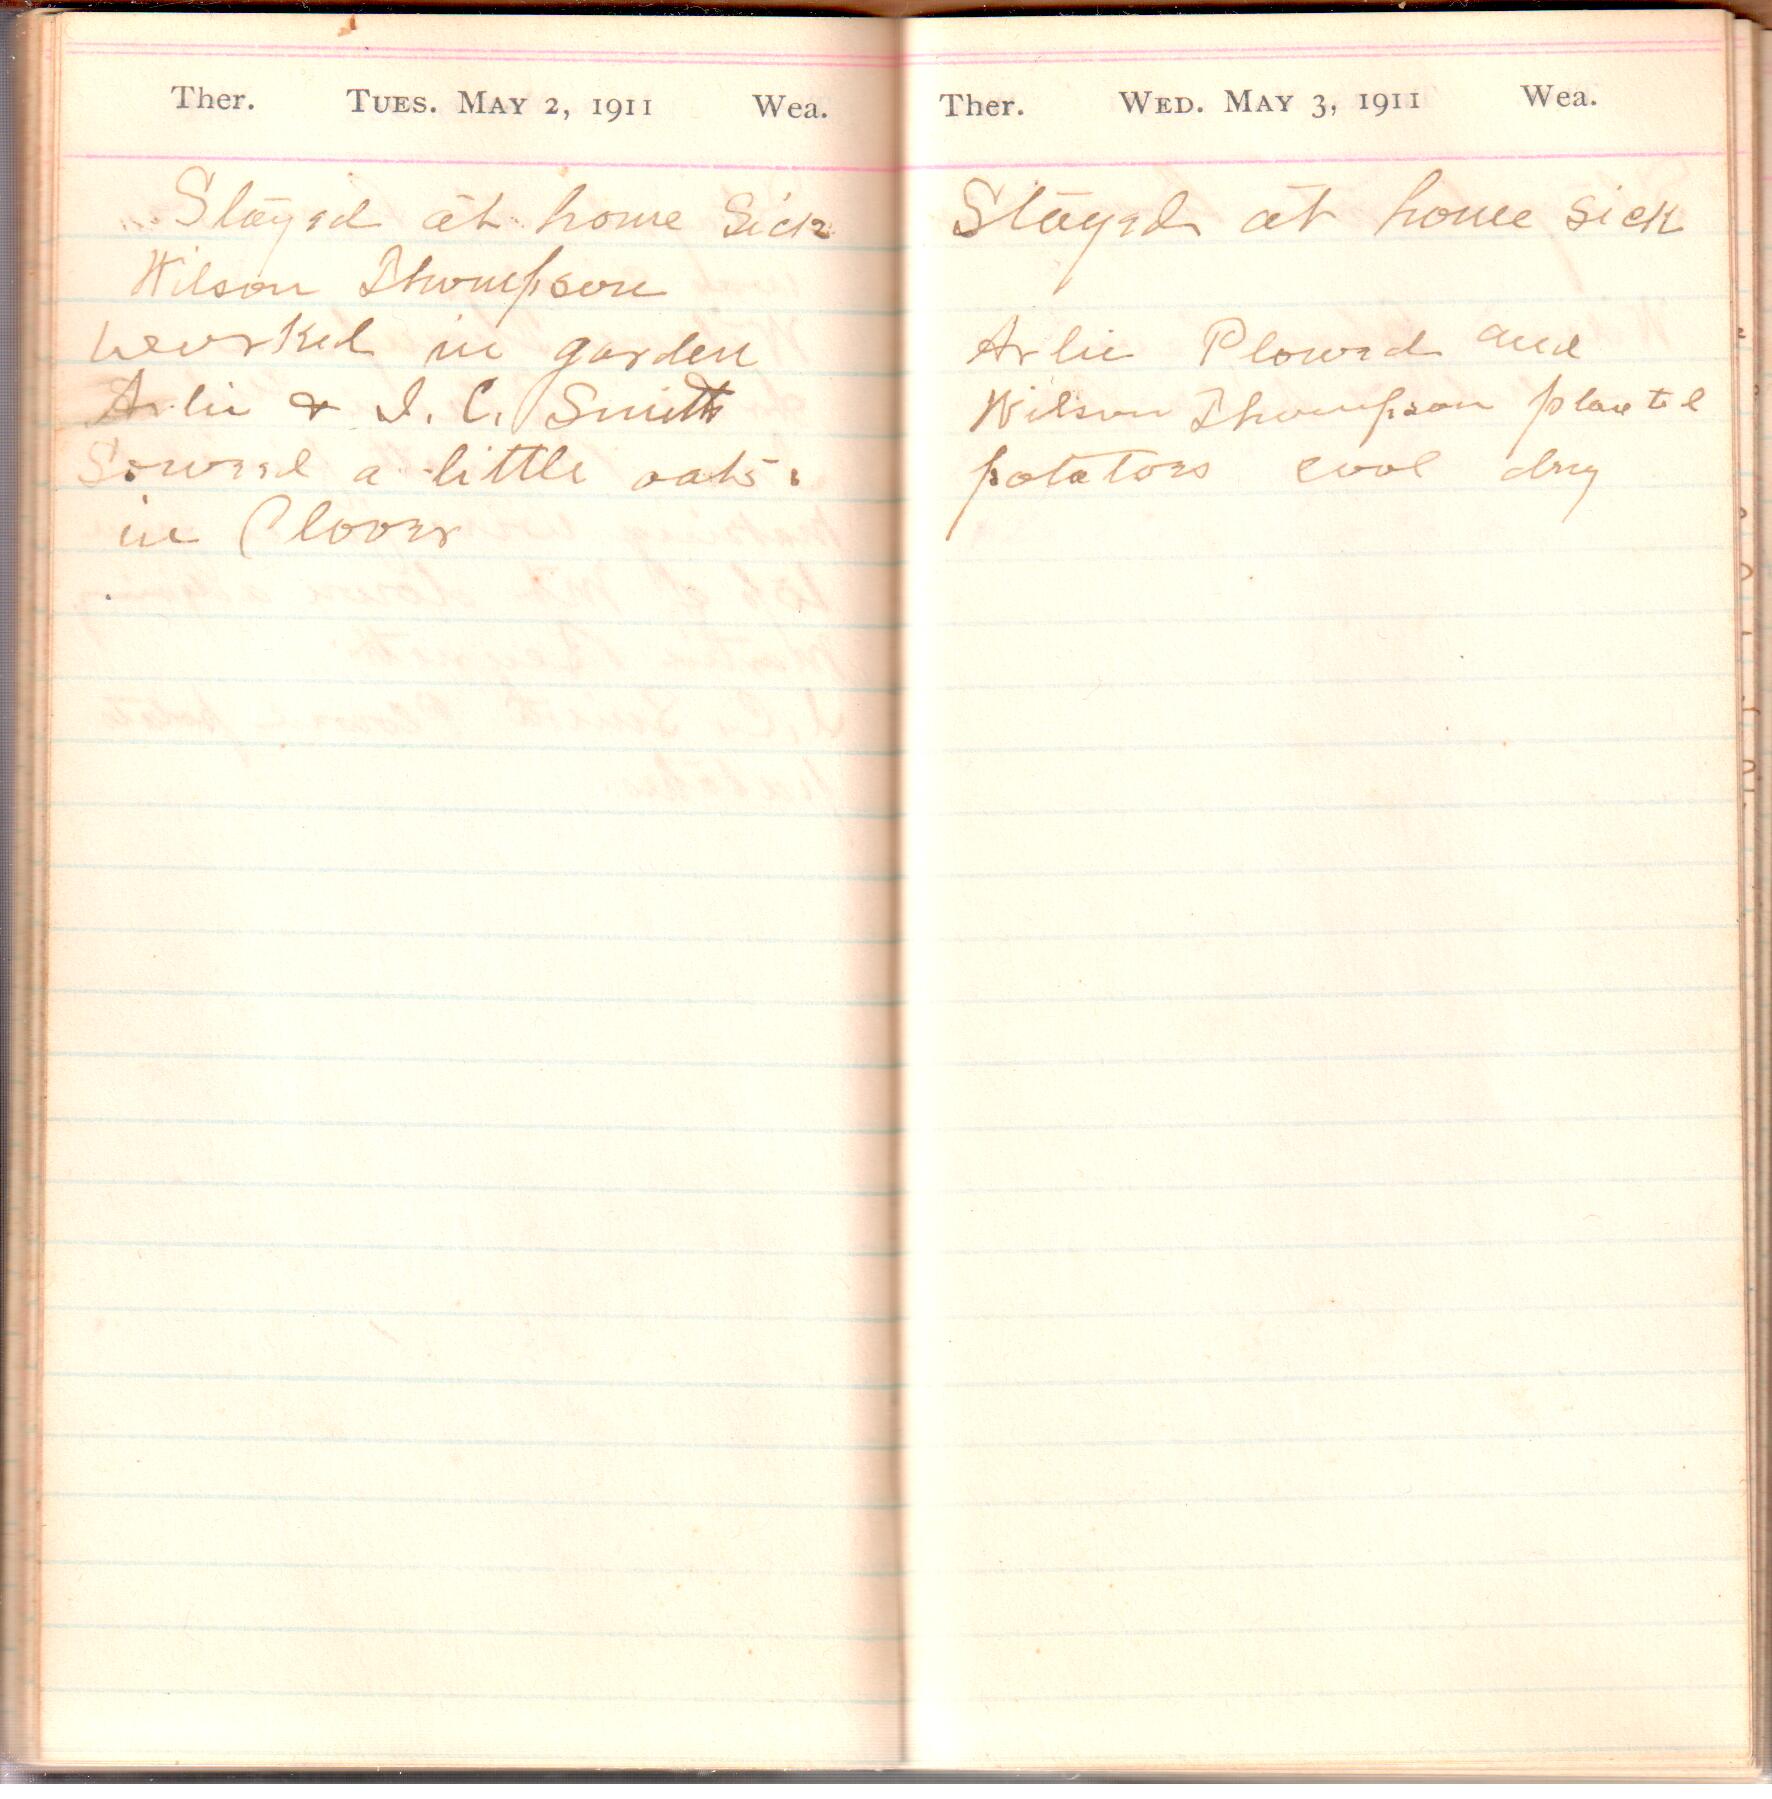 Ther. TUES. MAY 2, 1911 Wea.
Stayed at home Sick
Wilson Thompson
worked in garden
Arlie & I. C. Smith
Sowed a little oats
in Clover
Ther. WED. MAY 3, 1911 Wea.
Stayed at home sick
Arlie Plowed and
Wilson Thompson planted
potatoes cool dry